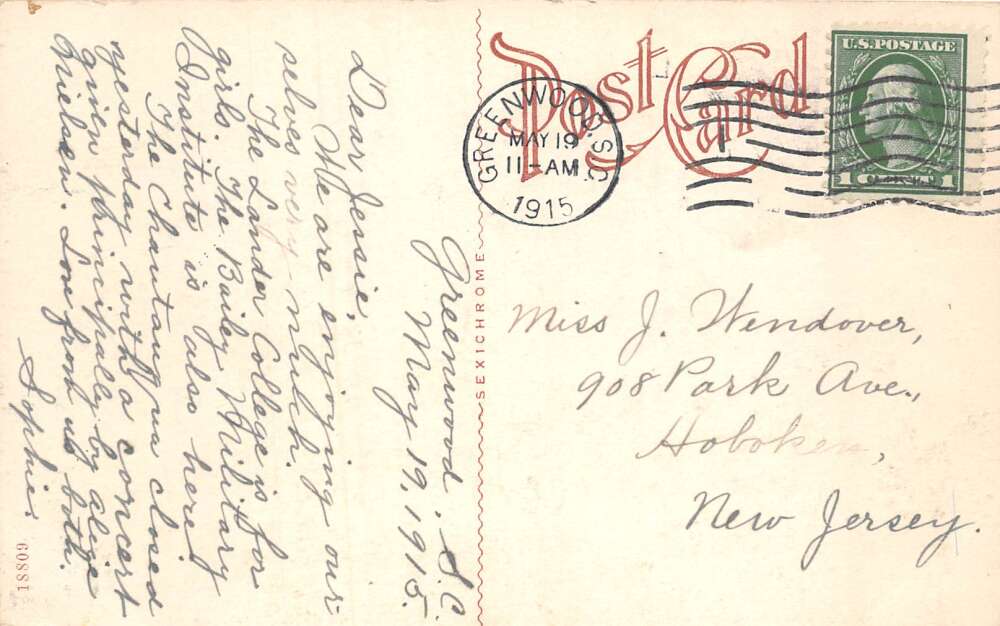 Post Card
U.S. POSTAGE
1 CENT 1
GREENWOOD, S.C.
MAY 19
11-AM
1915
1
Greenwood, S.C.
May 19, 1915.
Dear Jessie,
We are enjoying our-
selves very much.
The Lander College is for
girls. The Bailey Military
Institute is also here.
The Chautauqua closed
yesterday with a concert
given principally by Alice
Nielsen. Love from us both.
Sophie.
SEXICHROME
18809
Miss J. Wendover,
908 Park Ave.,
Hoboken,
New Jersey.